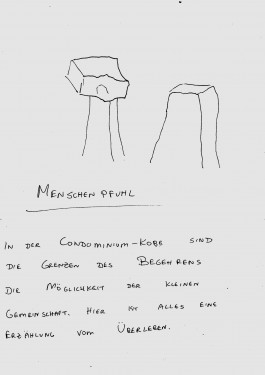 MENSCHENPFUHL
IN DER CONDOMINIUM-KOBE SIND
DIE GRENZEN DES BEGEHRENS
DIE MÖGLICHKEIT DER KLEINEN
GEMEINSCHAFT. HIER IST ALLES EINE
ERZÄHLUNG VOM ÜBERLEBEN.